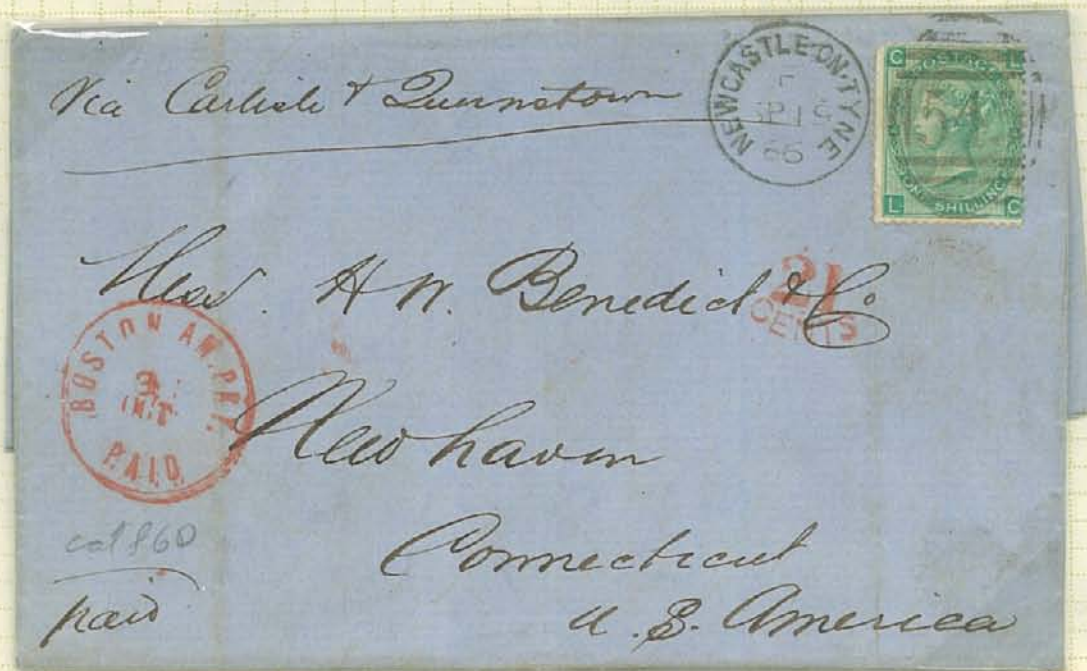 Via Carlisle & Queenstown
NEWCASTLE-ON-TYNE
SP 19
66
C L
POSTAGE
545
ONE SHILLING
L C
Mess. H W. Benedict & Co
21
CENTS
BOSTON AM. PKT.
3
OCT
PAID
New haven
Connecticut
U. S. America
cat £60
paid